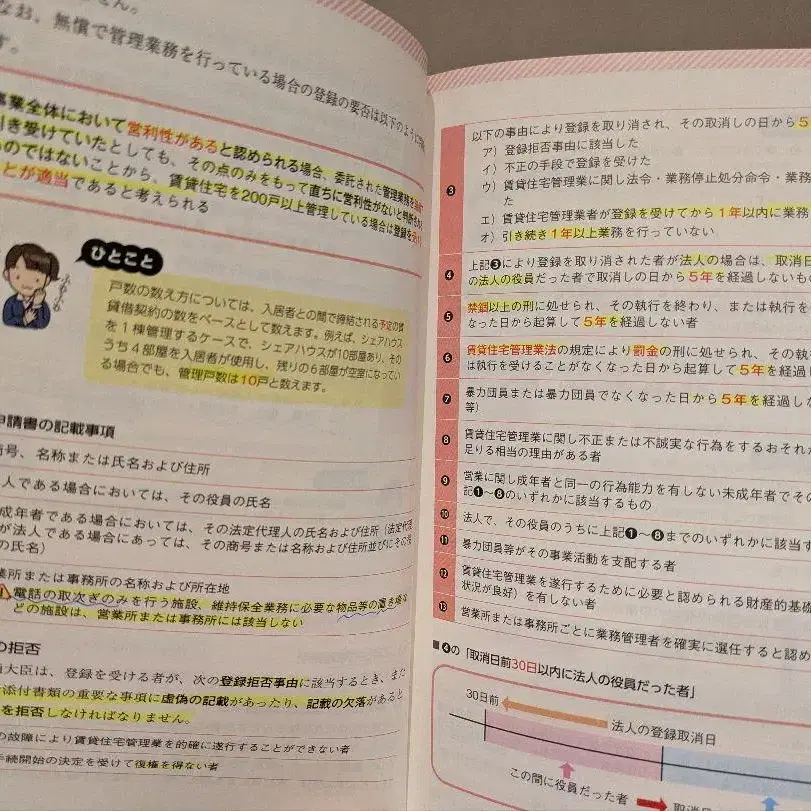 なお、無償で管理業務を行っている場合の登録の要否は以下のように
す。
事業全体において営利性があると認められる場合、委託された管理業務を
引き受けていたとしても、その点のみをもって直ちに営利性がないと
ものではないことから、賃貸住宅を200戸以上管理している場合は登録を
ことが適当であると考えられる
ひとこと
戸数の数え方については、入居者との間で締結される予定の賃
貸借契約の数をベースとして数えます。例えば、シェアハウス
を1棟管理するケースで、シェアハウスが10部屋あり、その
うち4部屋を入居者が使用し、残りの6部屋が空室になってい
る場合でも、管理戸数は10戸と数えます。
申請書の記載事項
商号、名称または氏名および住所
人である場合においては、その役員の氏名
成年者である場合においては、その法定代理人の氏名および住所(法定代理
が法人である場合にあっては、その商号または名称および住所並びにその役
の氏名)
業所または事務所の名称および所在地
電話の取次ぎのみを行う施設、維持保全業務に必要な物品等の置き場な
どの施設は、営業所または事務所には該当しない
の拒否
大臣は、登録を受ける者が、次の登録拒否事由に該当するとき、また
添付書類の重要な事項に虚偽の記載があったり、記載の欠落があると
を拒否しなければなりません。
の故障により賃貸住宅管理業を的確に遂行することができない者
手続開始の決定を受けて復権を得ない者
❸
以下の事由により登録を取り消され、その取消しの日から5
ア)登録拒否事由に該当した
イ)不正の手段で登録を受けた
ウ)賃貸住宅管理業に関し法令・業務停止処分命令・業務
た
エ)賃貸住宅管理業者が登録を受けてから1年以内に業務
オ)引き続き1年以上業務を行っていない
❹ 上記❸により登録を取り消された者が法人の場合は、取消日
の法人の役員だった者で取消しの日から5年を経過しないも
❺ 禁錮以上の刑に処せられ、その執行を終わり、または執行を
なった日から起算して5年を経過しない者
❻ 賃貸住宅管理業法の規定により罰金の刑に処せられ、その執
は執行を受けることがなくなった日から起算して5年を経
❼ 暴力団員または暴力団員でなくなった日から5年を経過し
等)
❽ 賃貸住宅管理業に関し不正または不誠実な行為をするおそれ
足りる相当の理由がある者
❾ 営業に関し成年者と同一の行為能力を有しない未成年者でその
記❶~❽のいずれかに該当するもの
❿ 法人で、その役員のうちに上記❶~❽までのいずれかに該当す
⓫ 暴力団員等がその事業活動を支配する者
⓬ 賃貸住宅管理業を遂行するために必要と認められる財産的基礎
状況が良好)を有しない者
⓭ 営業所または事務所ごとに業務管理者を確実に選任すると認め
■❹の「取消日前30日以内に法人の役員だった者」
30日前
法人の登録取消日
この間に役員だった者
取消日